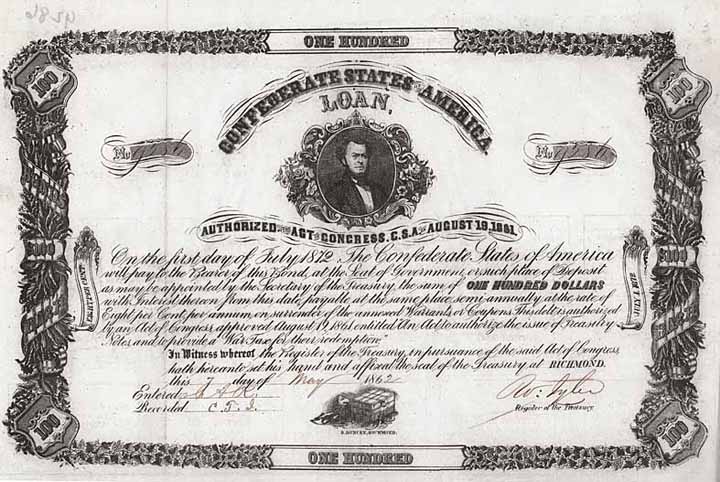 ONE HUNDRED
100
100
CONFEDERATE STATES OF AMERICA
LOAN,
No
No
AUTHORIZED BY ACT OF CONGRESS, C.S.A. OF AUGUST 19, 1861.
EIGHT PER CENT
JULY 1, 1872
On the first day of July 1872, The Confederate States of America
will pay to the Bearer of this Bond, at the Seat of Government, or such place of Deposit
as may be appointed by the Secretary of the Treasury, the sum of ONE HUNDRED DOLLARS
with Interest thereon from this date, payable at the same place semi-annually at the rate of
Eight per Cent. per annum, on surrender of the annexed Warrants or Coupons. This debt is authorized
by an Act of Congress approved August 19, 1861 entitled An Act to authorize the issue of Treasury
Notes and to provide a War Tax for their redemption.
In Witness whereof the Register of the Treasury, in pursuance of the said Act of Congress,
hath hereunto set his hand and affixed the seal of the Treasury at RICHMOND.
this 7 day of May 1862
Entered
Recorded
Register of the Treasury.
B. DUNCAN, RICHMOND.
100
100
ONE HUNDRED